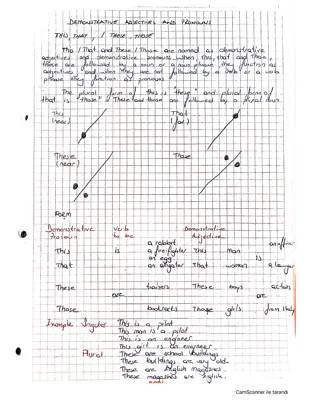 DEMONSTRATIVE ADJECTIVES AND PRONOUNS
THIS, THAT, / THESE, THOSE
This / That and These / Those are named as demonstrative
adjectives and demonstrative pronouns when, this, that and these,
those are followed by a noun or a noun phrase they function as
adjectives and when they are not followed by a noun or a noun
phrase they function as pronouns
The plural form of this is "these" and plural form of
that is "those" These and those are followed by a plural noun
This That
(near) (far)
These Those
(near)
FORM
Demonstrative Verb Demonstrative
Pronoun to be Adjective
a robot
This is a firefighter This man
an egg is
That an alligator That woman a lawyer
These trainers These boys actors
are are
Those Those girls from Italy
Example Singular This is a pilot
This man is a pilot
This is an engineer
This girl is an engineer
Plural These are school buildings
These buildings are very old
These are English magazines
These magazines are English.
CamScanner ile tarandı